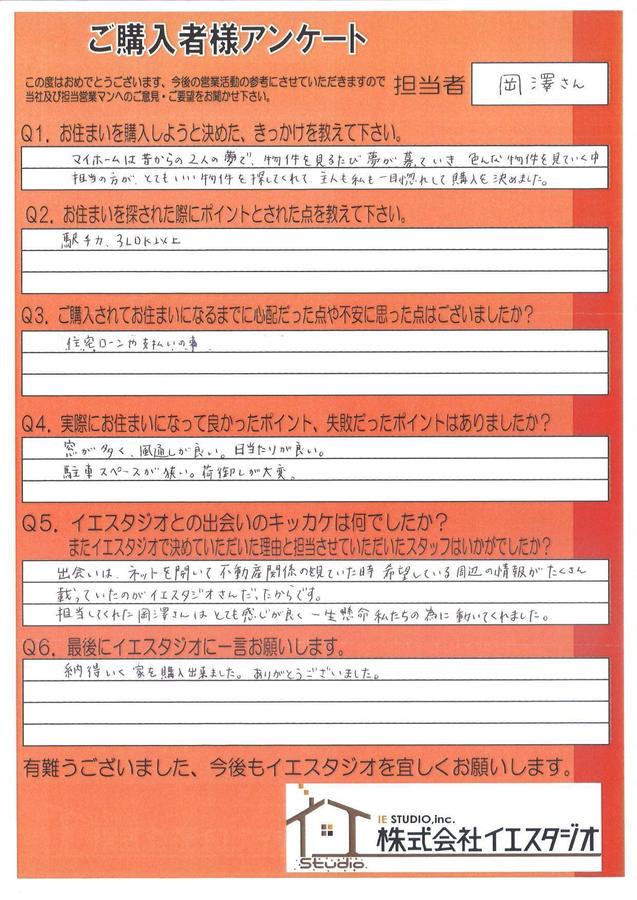 ご購入者様アンケート
この度はおめでとうございます、今後の営業活動の参考にさせていただきますので
当社及び担当営業マンへのご意見・ご要望をお聞かせ下さい。
担当者 岡澤さん
Q1. お住まいを購入しようと決めた、きっかけを教えて下さい。
マイホームは昔からの2人の夢で、物件を見るたび夢が募っていき 色んな物件を見ていく中
担当の方が、とてもいい物件を探してくれて、主人も私も一目惚れして購入を決めました。
Q2. お住まいを探された際にポイントとされた点を教えて下さい。
駅チカ、3LDK以上
Q3. ご購入されてお住まいになるまでに心配だった点や不安に思った点はございましたか?
住宅ローンや支払いの事
Q4. 実際にお住まいになって良かったポイント、失敗だったポイントはありましたか?
窓が多く、風通しが良い。日当たりが良い。
駐車スペースが狭い。荷卸しが大変。
Q5. イエスタジオとの出会いのキッカケは何でしたか?
またイエスタジオで決めていただいた理由と担当させていただいたスタッフはいかがでしたか?
出会いは、ネットを開いて不動産関係の覗ていた時 希望している周辺の情報がたくさん
載っていたのがイエスタジオさんだったからです。
担当してくれた岡澤さんはとても感じが良く一生懸命私たちの為に動いてくれました。
Q6. 最後にイエスタジオに一言お願いします。
納得いく家を購入出来ました。ありがとうございました。
有難うございました、今後もイエスタジオを宜しくお願いします。
IE STUDIO,inc.
株式会社イエスタジオ
Studio